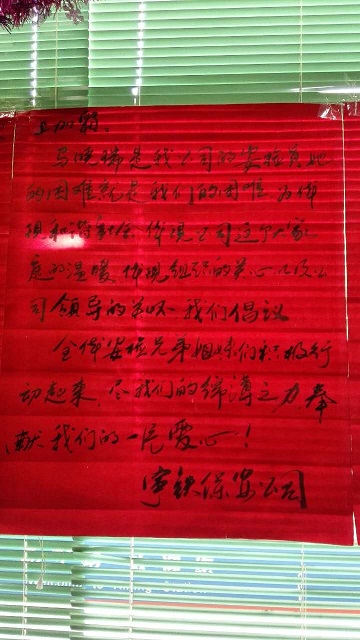 马晓瑞是我公司的安检员她
的困难就是我们的困难 为体
现和谐社会 体现公司这个大家
庭的温暖 体现组织的关心以及公
司领导的关怀 我们倡议
全体安检兄弟姐妹们积极行
动起来 尽我们的绵薄之力奉
献我们的一片爱心！
宇铁保安公司